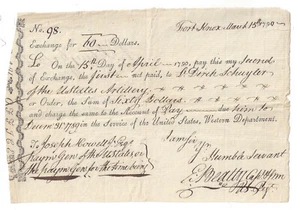 No. 98. Fort Knox March 15th 1790
Exchange for 60 Dollars.
On the 15th Day of April 1790, pay this my Second
of Exchange, the first not paid, to Lt Derck Schuyler
of the UStates Artillery
or Order, the Sum of Sixty Dollars
and charge the same to the Account of Pay due him to
in the Service of the United States, Western Department.
To Joseph Howell Esqr I am Sir
Paymr Genl of the UStates or Yr
the paymr Genl for the time being Humble Servant